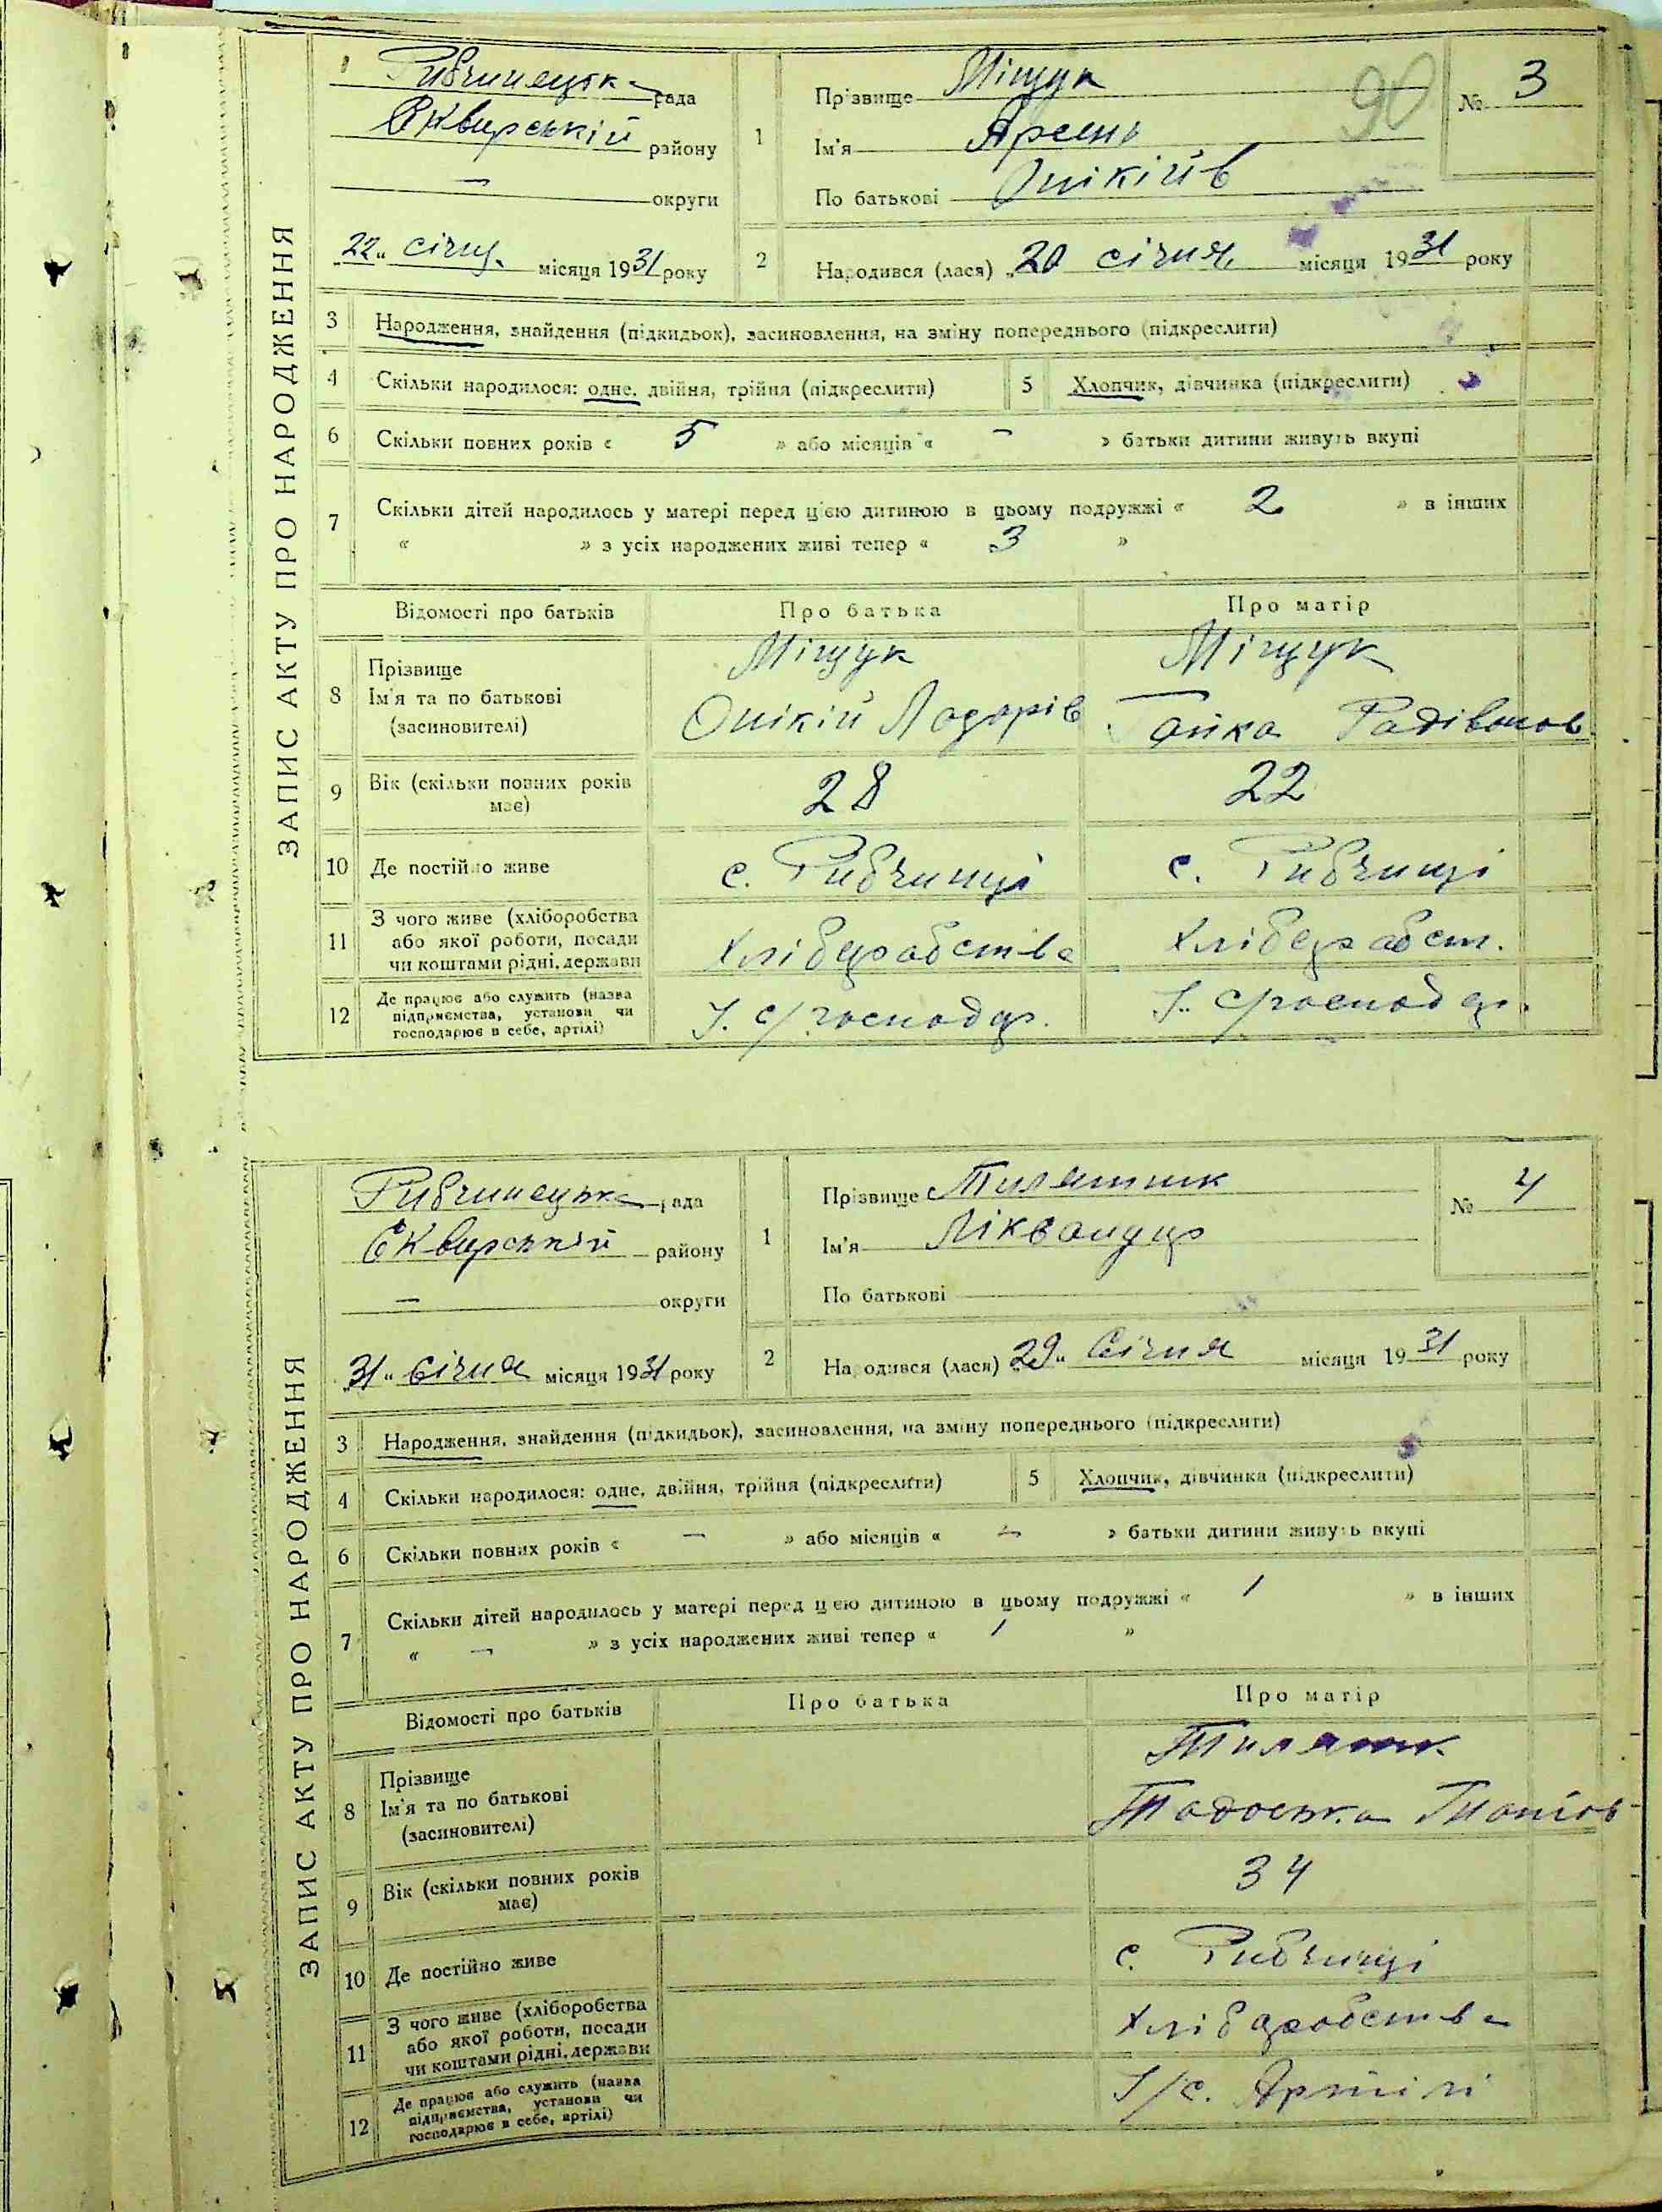 ЗАПИС АКТУ ПРО НАРОДЖЕННЯ
Рибчинецька рада
Сквирській району
— округи
22 січн. місяця 1931 року
1
Прізвище Міщук
Ім'я Арсень
По батькові Онікіїв
90
№ 3
2
Народився (лася) 20 січня місяця 1931 року
3 Народження, знайдення (підкидьок), засиновлення, на зміну попереднього (підкреслити)
4 Скільки народилося: одне, двійня, трійня (підкреслити)
5 Хлопчик, дівчинка (підкреслити)
6 Скільки повних років « 5 » або місяців « – » батьки дитини живуть вкупі
7 Скільки дітей народилось у матері перед цією дитиною в цьому подружжі « 2 » в інших
« » з усіх народжених живі тепер « 3 »
Відомості про батьків Про батька Про матір
8 Прізвище
Ім'я та по батькові
(засиновителі)
Міщук
Онікій Лазорів
Міщук
Ганка Радівонов
9 Вік (скільки повних років
має)
28
22
10 Де постійно живе
с. Рибчинці
с. Рибчинці
11 З чого живе (хліборобства
або якої роботи, посади
чи коштами рідні, держави
Хліборобства
Хліборобст.
12 Де працює або служить (назва
підприємства, установи чи
господарює в себе, артілі)
І. с/господар.
І. с/господар.
ЗАПИС АКТУ ПРО НАРОДЖЕННЯ
Рибчинецька рада
Сквирській району
— округи
31 Січня місяця 1931 року
1
Прізвище Тилятник
Ім'я Ліквандир
По батькові
№ 4
2
Народився (лася) 29 Січня місяця 1931 року
3 Народження, знайдення (підкидьок), засиновлення, на зміну попереднього (підкреслити)
4 Скільки народилося: одне, двійня, трійня (підкреслити)
5 Хлопчик, дівчинка (підкреслити)
6 Скільки повних років « – » або місяців « – » батьки дитини живуть вкупі
7 Скільки дітей народилось у матері перед цією дитиною в цьому подружжі « 1 » в інших
« – » з усіх народжених живі тепер « 1 »
Відомості про батьків Про батька Про матір
8 Прізвище
Ім'я та по батькові
(засиновителі)
Тилятн.
Тодоська
9 Вік (скільки повних років
має)
34
10 Де постійно живе
с. Рибчинці
11 З чого живе (хліборобства
або якої роботи, посади
чи коштами рідні, держави
Хліборобства
12 Де працює або служить (назва
підприємства, установи чи
господарює в себе, артілі)
І/с. Артілі